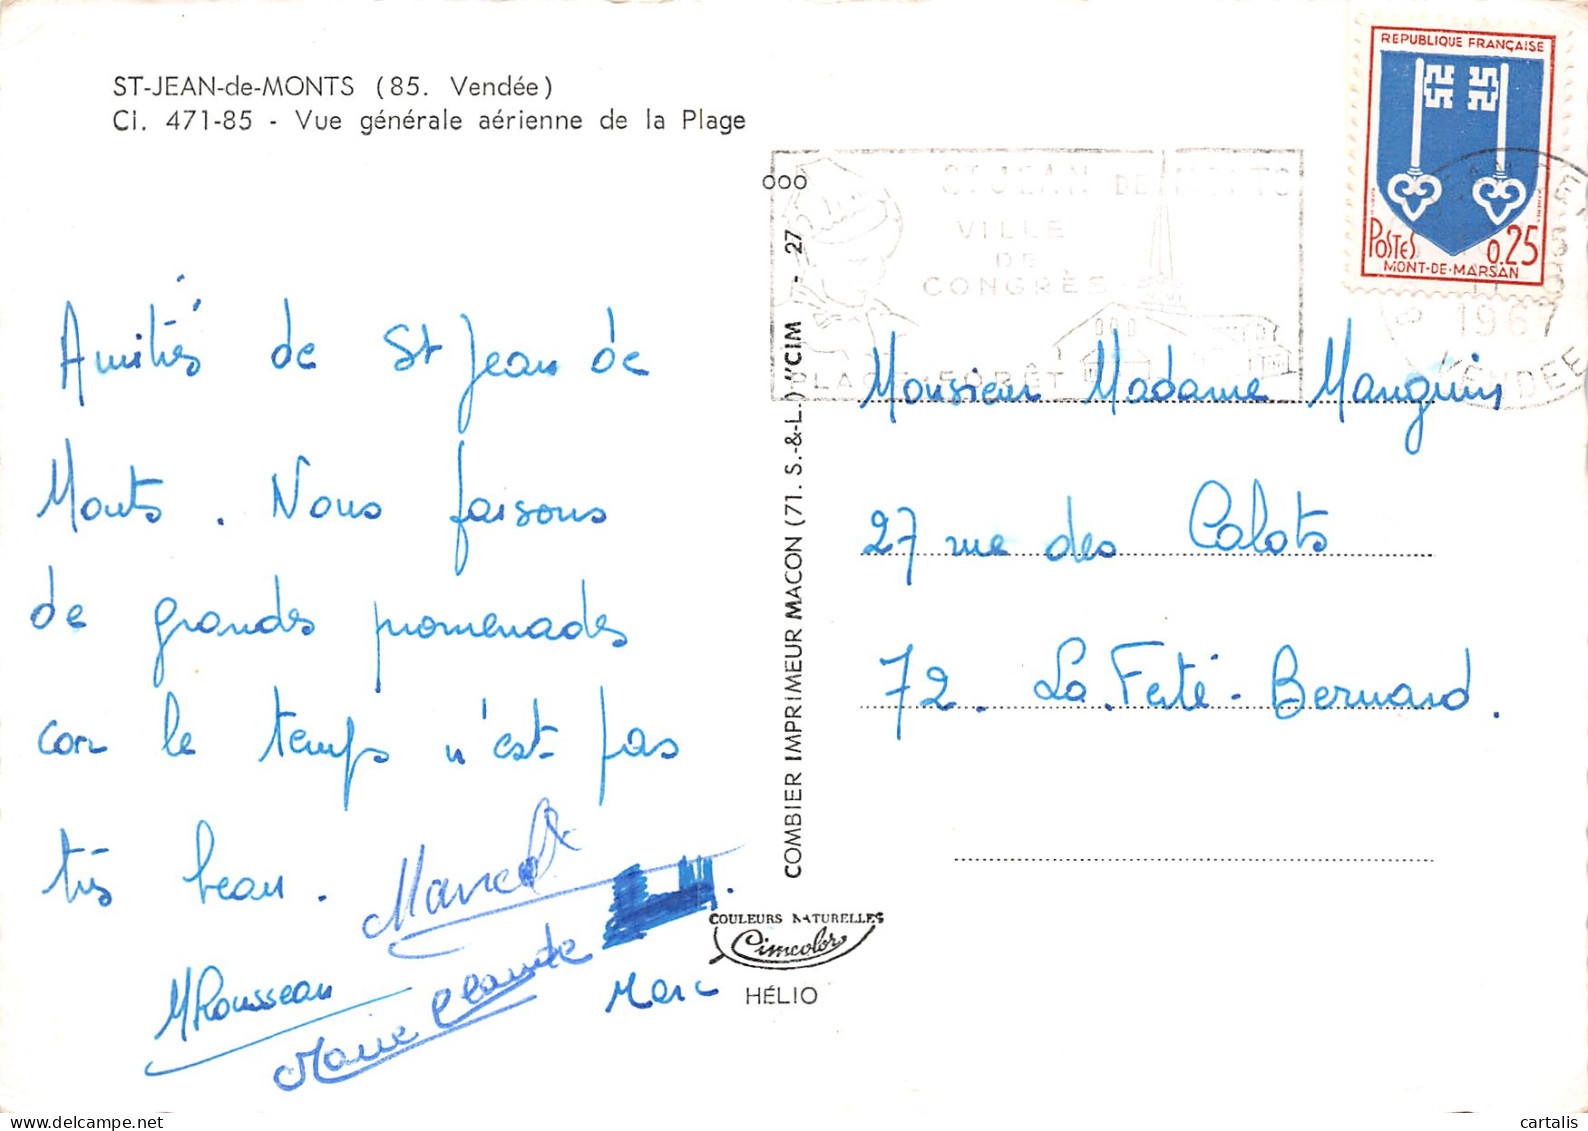 ST-JEAN-de-MONTS (85. Vendée)
Ci. 471-85 - Vue générale aérienne de la Plage
Amitiés de St Jean de
Monts. Nous faisons
de grandes promenades
car le temps n'est pas
très beau.
Marcel
MRousseau
Marie Claude
Marc
COMBIER IMPRIMEUR MACON (71. S.-&-L.) "CIM" - 27
ooo
COULEURS NATURELLES
Cimcolor
HÉLIO
ST JEAN DE MONTS
VILLE
DE
CONGRÈS
PLAGE FORÊT
REPUBLIQUE FRANÇAISE
POSTES 0,25
MONT-DE-MARSAN
1967
VENDEE
Monsieur Madame Manguin
27 rue des Calots
72. La Ferté-Bernard.
© cartalis
www.delcampe.net